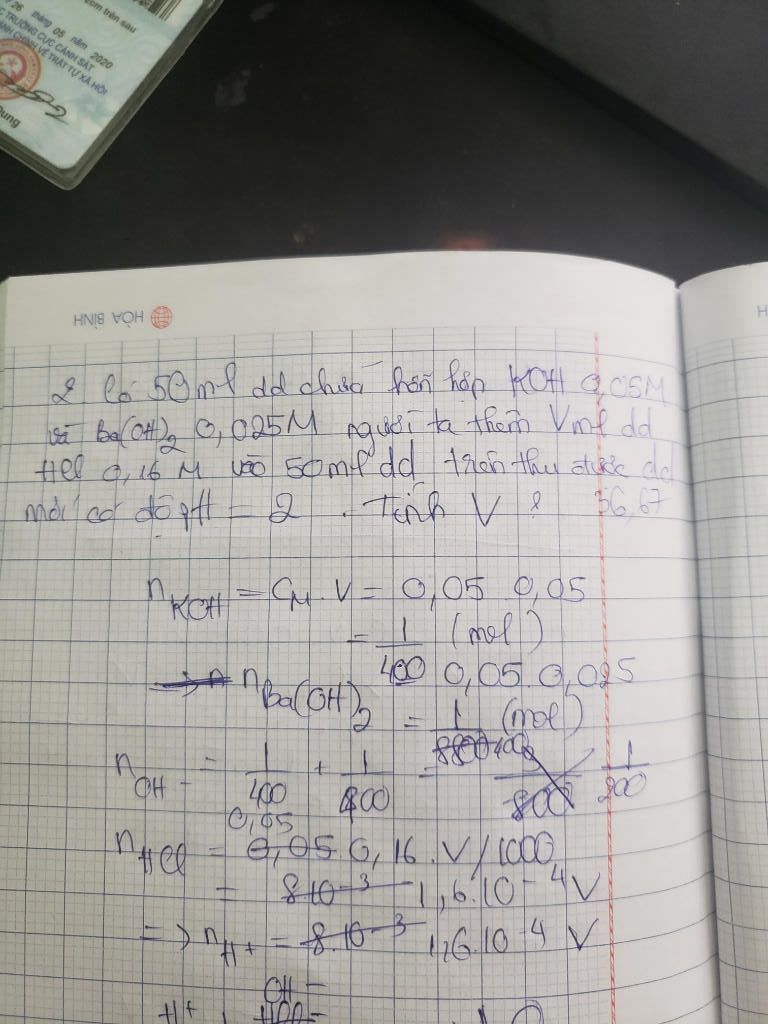 com trên sau
26 tháng 05 năm 2020
C TRƯỞNG CỤC CẢNH SÁT
HÀNH CHÍNH VỀ TRẬT TỰ XÃ HỘI
Dung
HÒA BÌNH
H
2 Có 50ml dd chứa hỗn hợp KOH 0,05M
và Ba(OH)2 0,025M người ta thêm Vml dd
HCl 0,16M vào 50ml dd trên thu được dd
mới có độ pH = 2 . Tính V ? 36,67
nKOH = CM.V = 0,05 0,05
= 1/400 (mol)
n Ba(OH)2 0,05.0,025
= 1/ (mol)
nOH- = 1/400 + 1/400 = 1/200
0,05
nHCl = 0,05.0,16.V/1000
= 8 10-3 1,6.10-4 V
=> nH+ = 8.10-3 1,6.10-4 V
OH-
H+